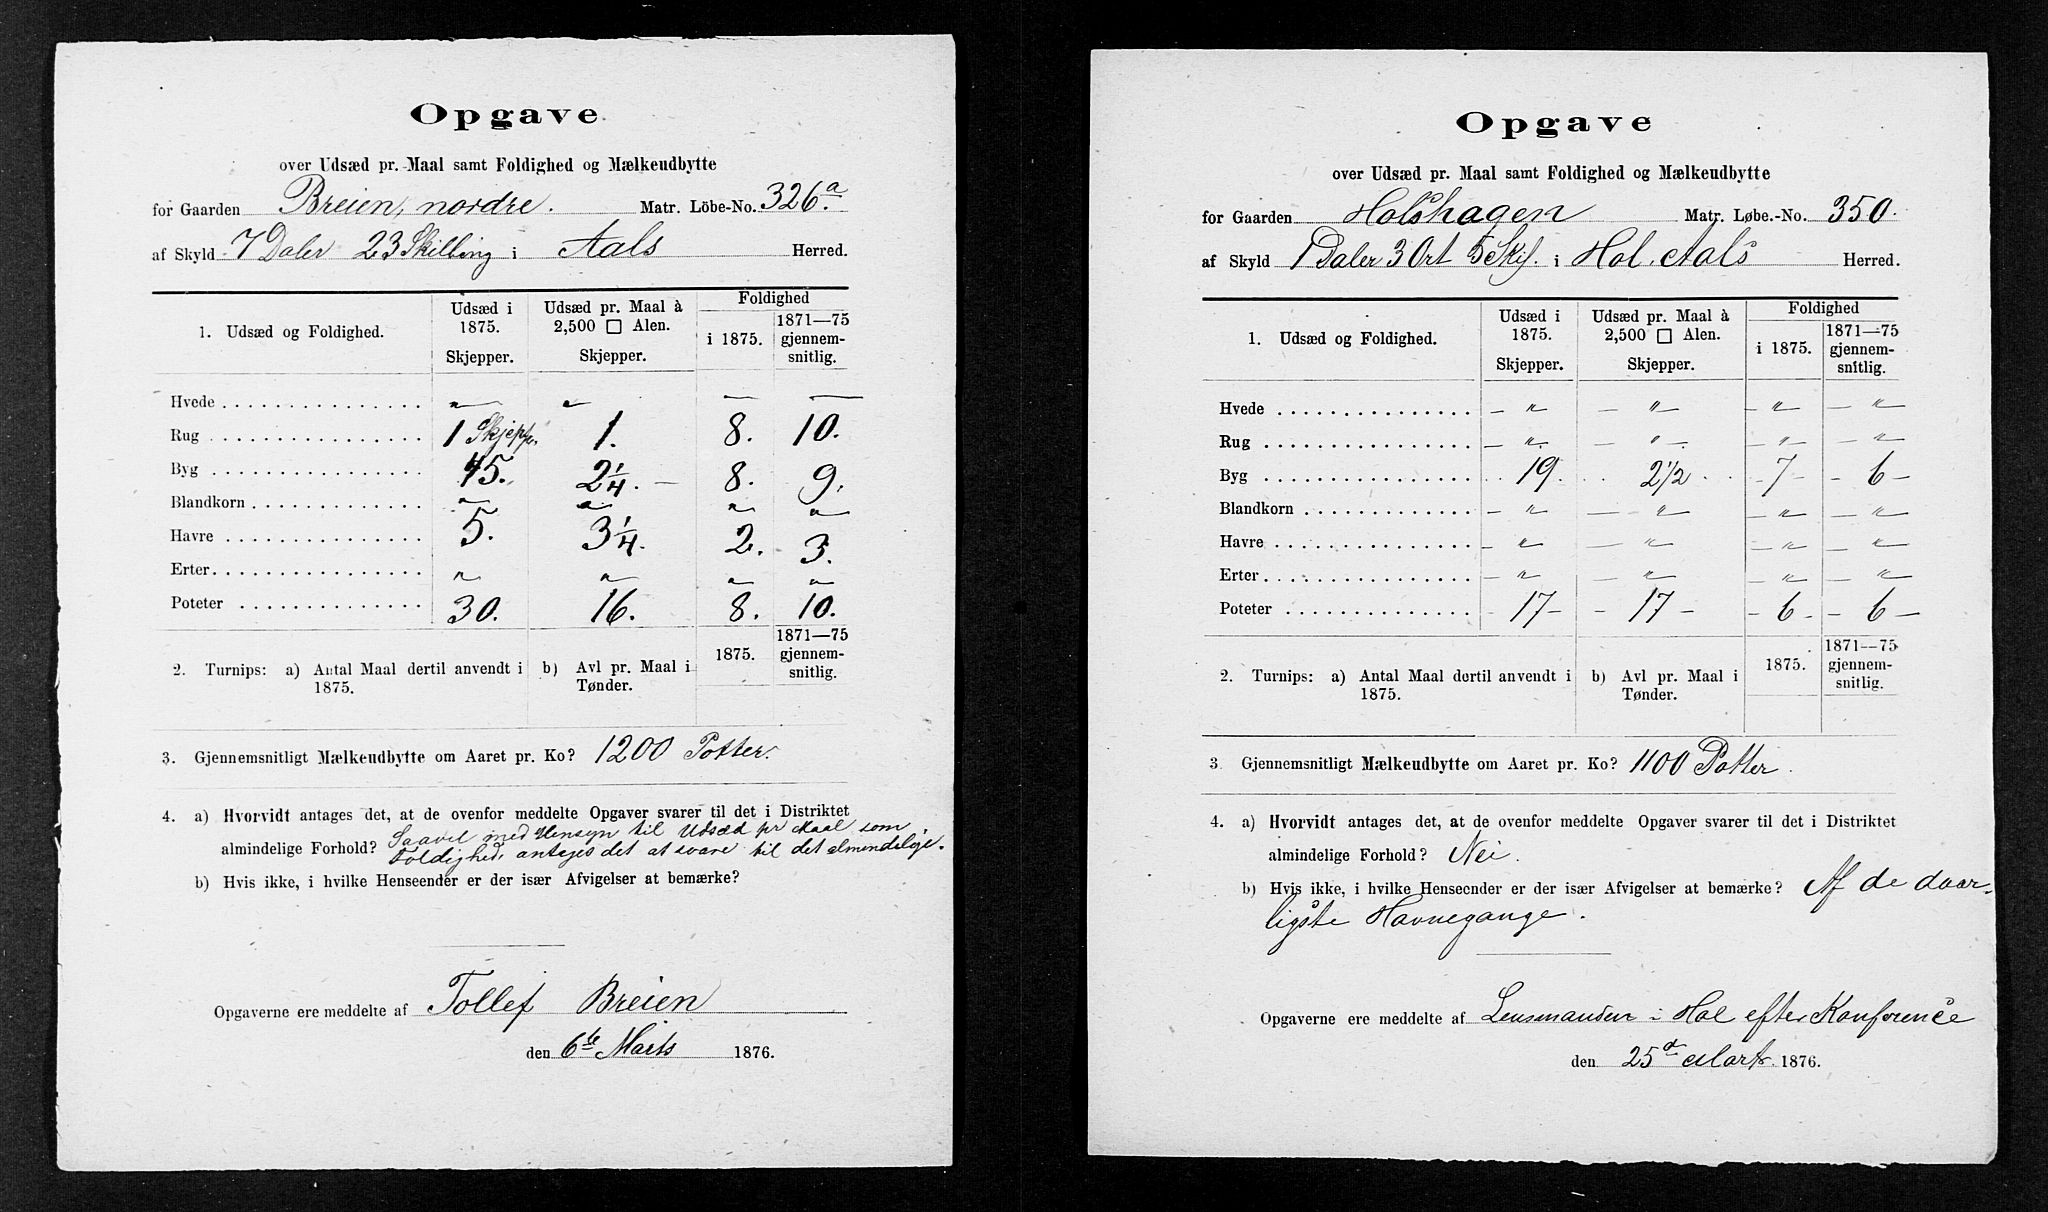 Opgave
over Udsæd pr. Maal samt Foldighed og Mælkeudbytte
for Gaarden Breien, nordre. Matr. Löbe-No. 326a.
af Skyld 7 Daler 23 Skilling i Aals Herred.
1. Udsæd og Foldighed. Udsæd i 1875. Skjepper. Udsæd pr. Maal à 2,500 □ Alen. Skjepper. Foldighed i 1875. 1871—75 gjennem-snitlig.
Hvede „ „ — —
Rug 1 Skjeppe. 1. 8. 10.
Byg 45. 2 1/4. — 8. 9.
Blandkorn „ „ „ „
Havre 5. 3 1/4. 2. 3.
Erter „ „ „ „
Poteter 30. 16. 8. 10.
2. Turnips: a) Antal Maal dertil anvendt i 1875. b) Avl pr. Maal i Tønder. 1875. 1871—75 gjennem-snitlig.
3. Gjennemsnitligt Mælkeudbytte om Aaret pr. Ko? 1200 Potter.
4. a) Hvorvidt antages det, at de ovenfor meddelte Opgaver svarer til det i Distriktet
almindelige Forhold? Saavel med Hensyn til Udsæd pr Maal som
Foldighed, antages det at svare til det almindelige.
b) Hvis ikke, i hvilke Henseender er der især Afvigelser at bemærke?
Opgaverne ere meddelte af Tollef Breien
den 6te Marts 1876.
Opgave
over Udsæd pr. Maal samt Foldighed og Mælkeudbytte
for Gaarden Holshagen Matr. Løbe.-No. 350.
af Skyld 1 Daler 3 Ort 5 Skil. i Hol. Aals Herred.
1. Udsæd og Foldighed. Udsæd i 1875. Skjepper. Udsæd pr. Maal à 2,500 □ Alen. Skjepper. Foldighed i 1875. 1871—75 gjennem-snitlig.
Hvede — „ — „ — — „ — — „ —
Rug — „ — „ — — „ — — „ —
Byg 19. 2 1/2 7 — 6 —
Blandkorn — „ — — „ — — „ — — „ —
Havre — „ — — „ — — „ — — „ —
Erter — „ — — „ — — „ — — „ —
Poteter 17 — — 17 — — 6 — — 6 —
2. Turnips: a) Antal Maal dertil anvendt i 1875. b) Avl pr. Maal i Tønder. 1875. 1871—75 gjennem-snitlig.
3 Gjennemsnitligt Mælkeudbytte om Aaret pr. Ko? 1100 Potter.
4. a) Hvorvidt antages det, at de ovenfor meddelte Opgaver svarer til det i Distriktet
almindelige Forhold? Nei.
b) Hvis ikke, i hvilke Henseender er der især Afvigelser at bemærke? Af de daar-
ligste Havnegange.
Opgaverne ere meddelte af Lensmanden i Hol efter Konference
den 25d Mart. 1876.